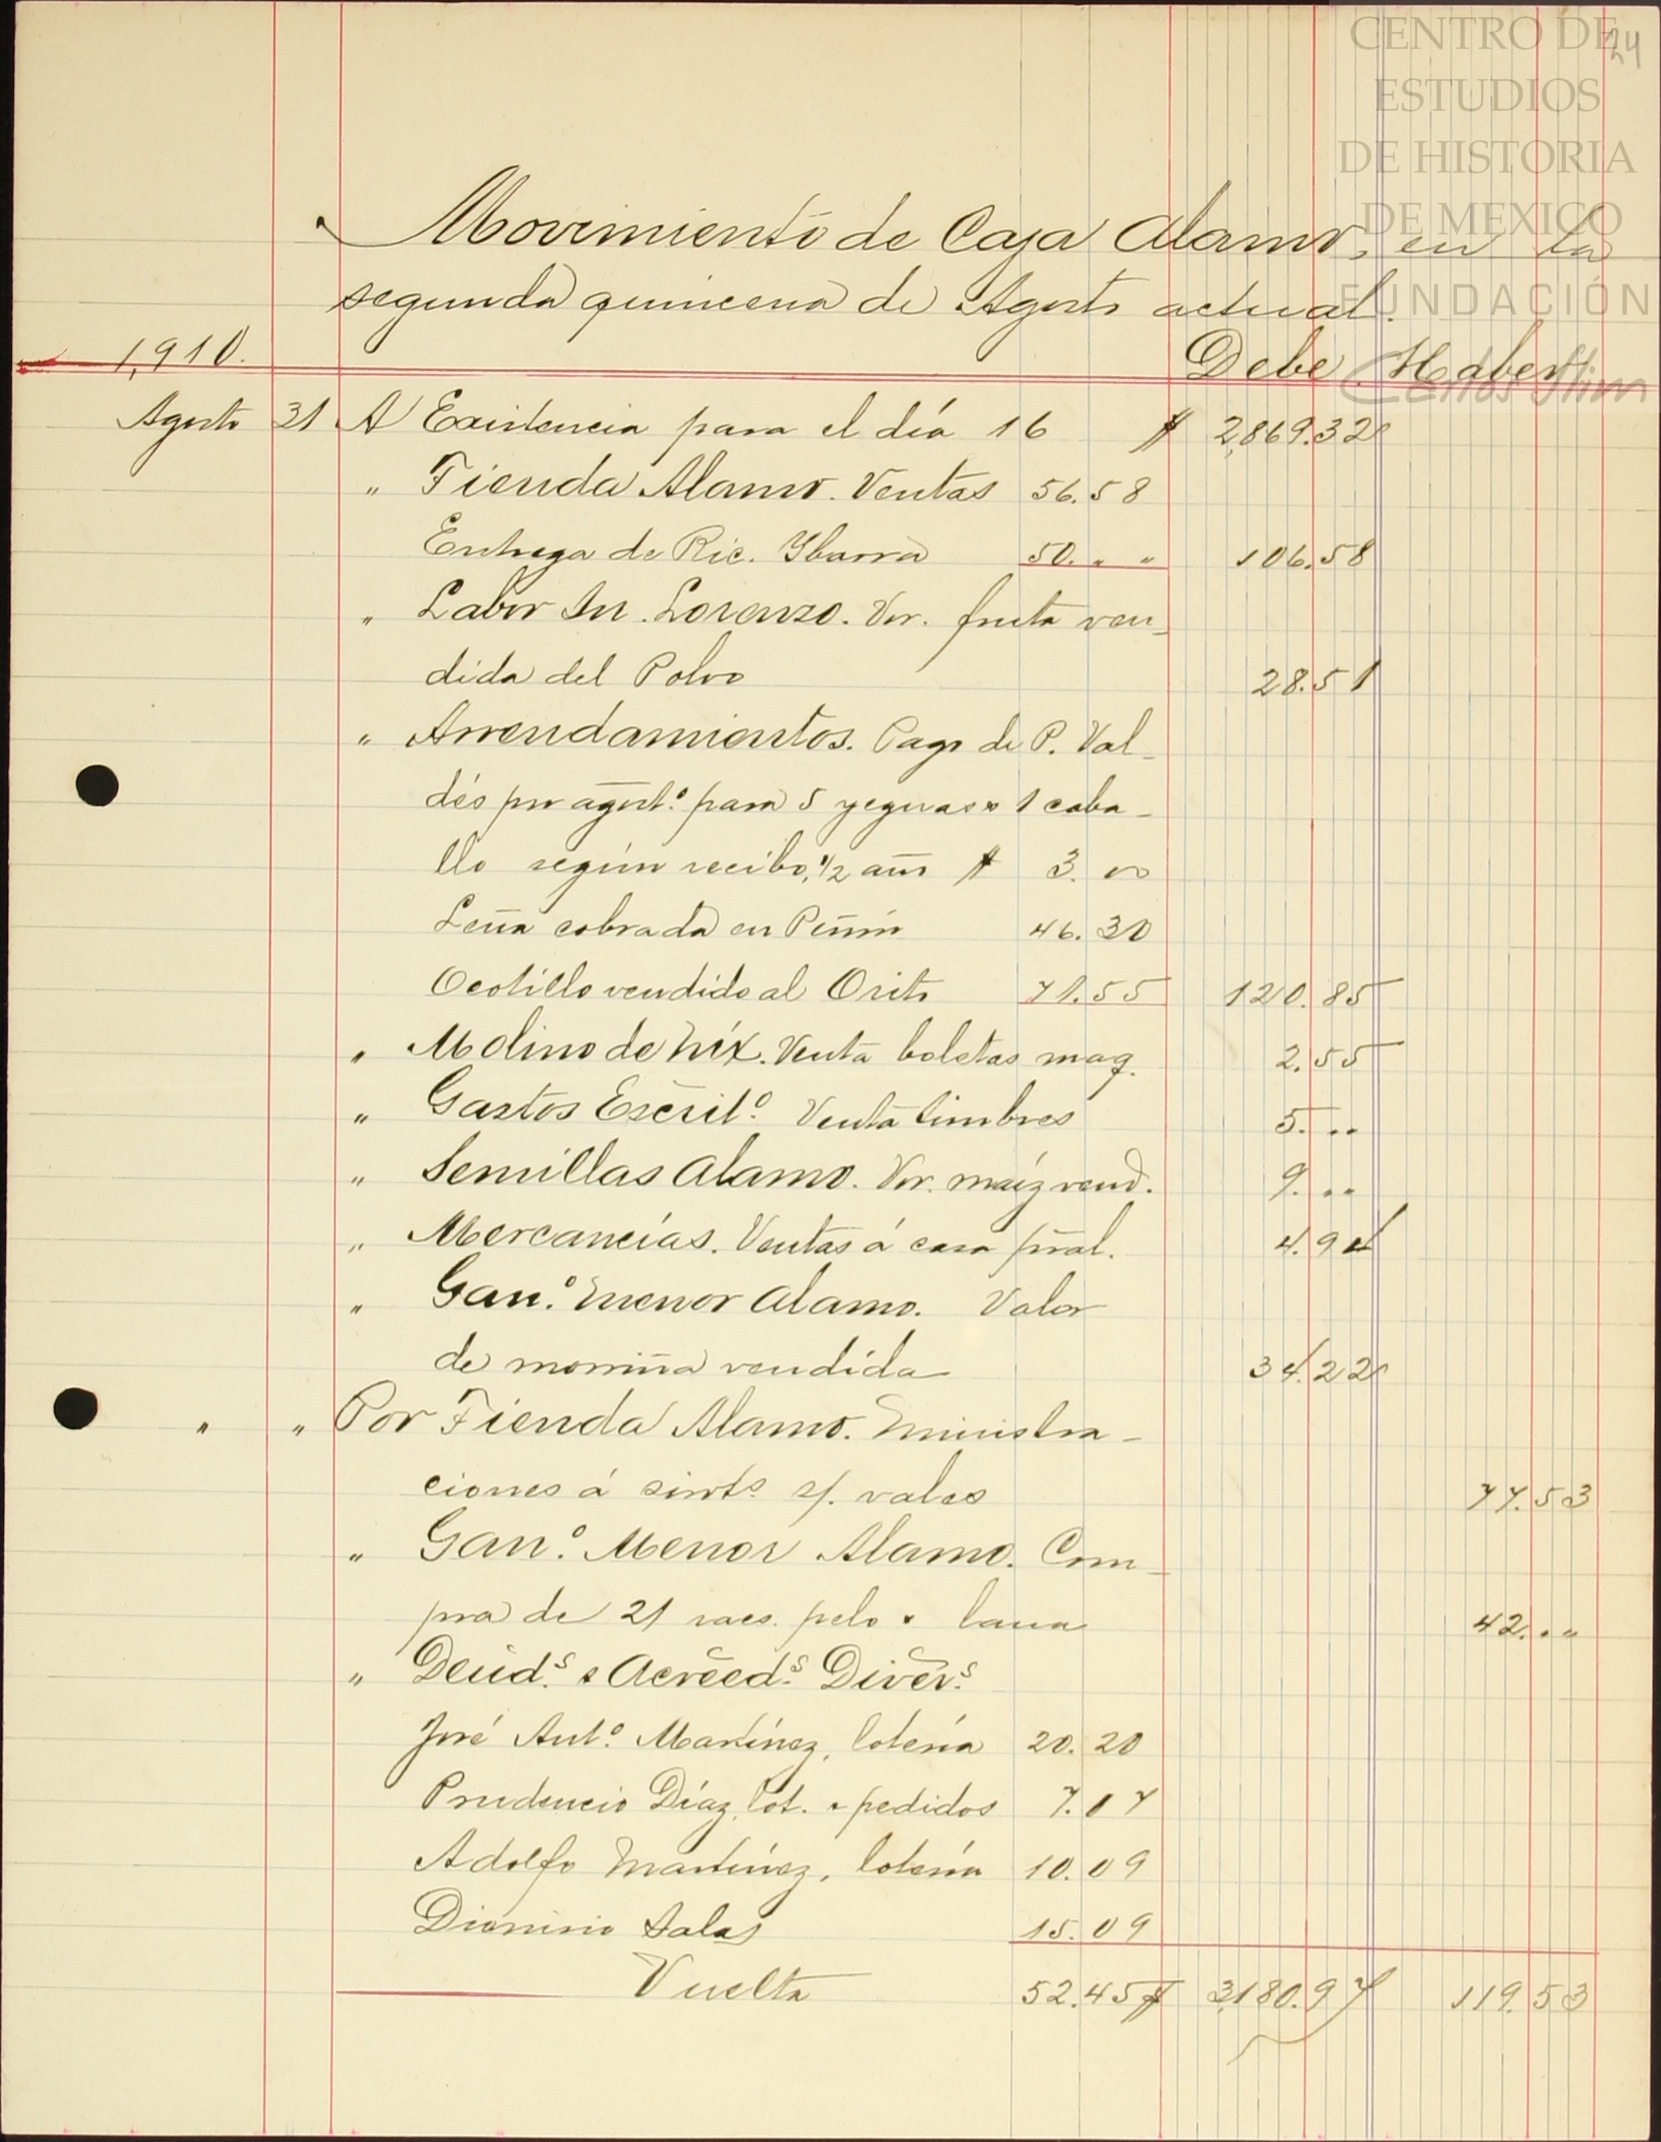 CENTRO DE
ESTUDIOS
DE HISTORIA
DE MEXICO
FUNDACIÓN
Carlos Slim
24
Movimiento de Caja Alamo, en la
segunda quincena de Agosto actual.
1,910. Debe Haber
Agosto 31 A Existencia para el día 16 $ 2,869.32
" Tienda Alamo. Ventas 56.58
Entrega de Ric. Ybarra 50. " " 106.58
" Labor Sn. Lorenzo. Vor. fruta ven-
dida del Polvo 28.51
" Arrendamientos. Pago de P. Val-
dés por agost.º para 5 yeguas y 1 caba-
llo según recibo, 1/2 año $ 3.00
Leña cobrada en Peñón 46.30
Ocotillo vendido al Orito 71.55 120.85
" Molino de Nix. Venta boletas maq. 2.55
" Gastos Escrit.º Venta timbres 5. ..
" Semillas Alamo. Vor. maíz vend. 9. ..
" Mercancías. Ventas á casa pral. 4.94
" Gan.º menor Alamo. Valor
de morriña vendida 34.22
" " Por Tienda Alamo. Ministra-
ciones á sirvts. s/. vales 77.53
" Gan.º Menor Alamo. Com-
pra de 21 raes. pelo y lana 42. ..
" Deud.s y Acreed.s Divers.
José Ant.º Martínez, lotería 20.20
Prudencio Díaz, lot. y pedidos 7.07
Adolfo Martínez, lotería 10.09
Dionisio Salas 15.09
Vuelta 52.45 $ 3,180.97 119.53